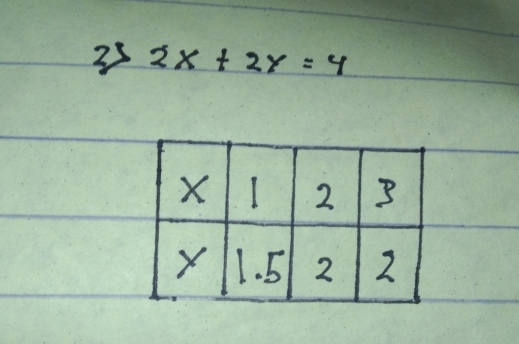 2) 2x + 2y = 4
X 1 2 3
Y 1.5 2 2